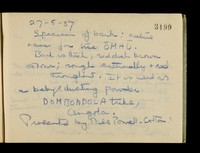 27-5-37
3199
Specimen of bark:
Bark is thick, reddish brown
colour; rough externally & red
throughout. It is used as
a baby dusting powder
DOMBONDOLA tribe,
Angola.
Presented by Mrs Powell-Cotton